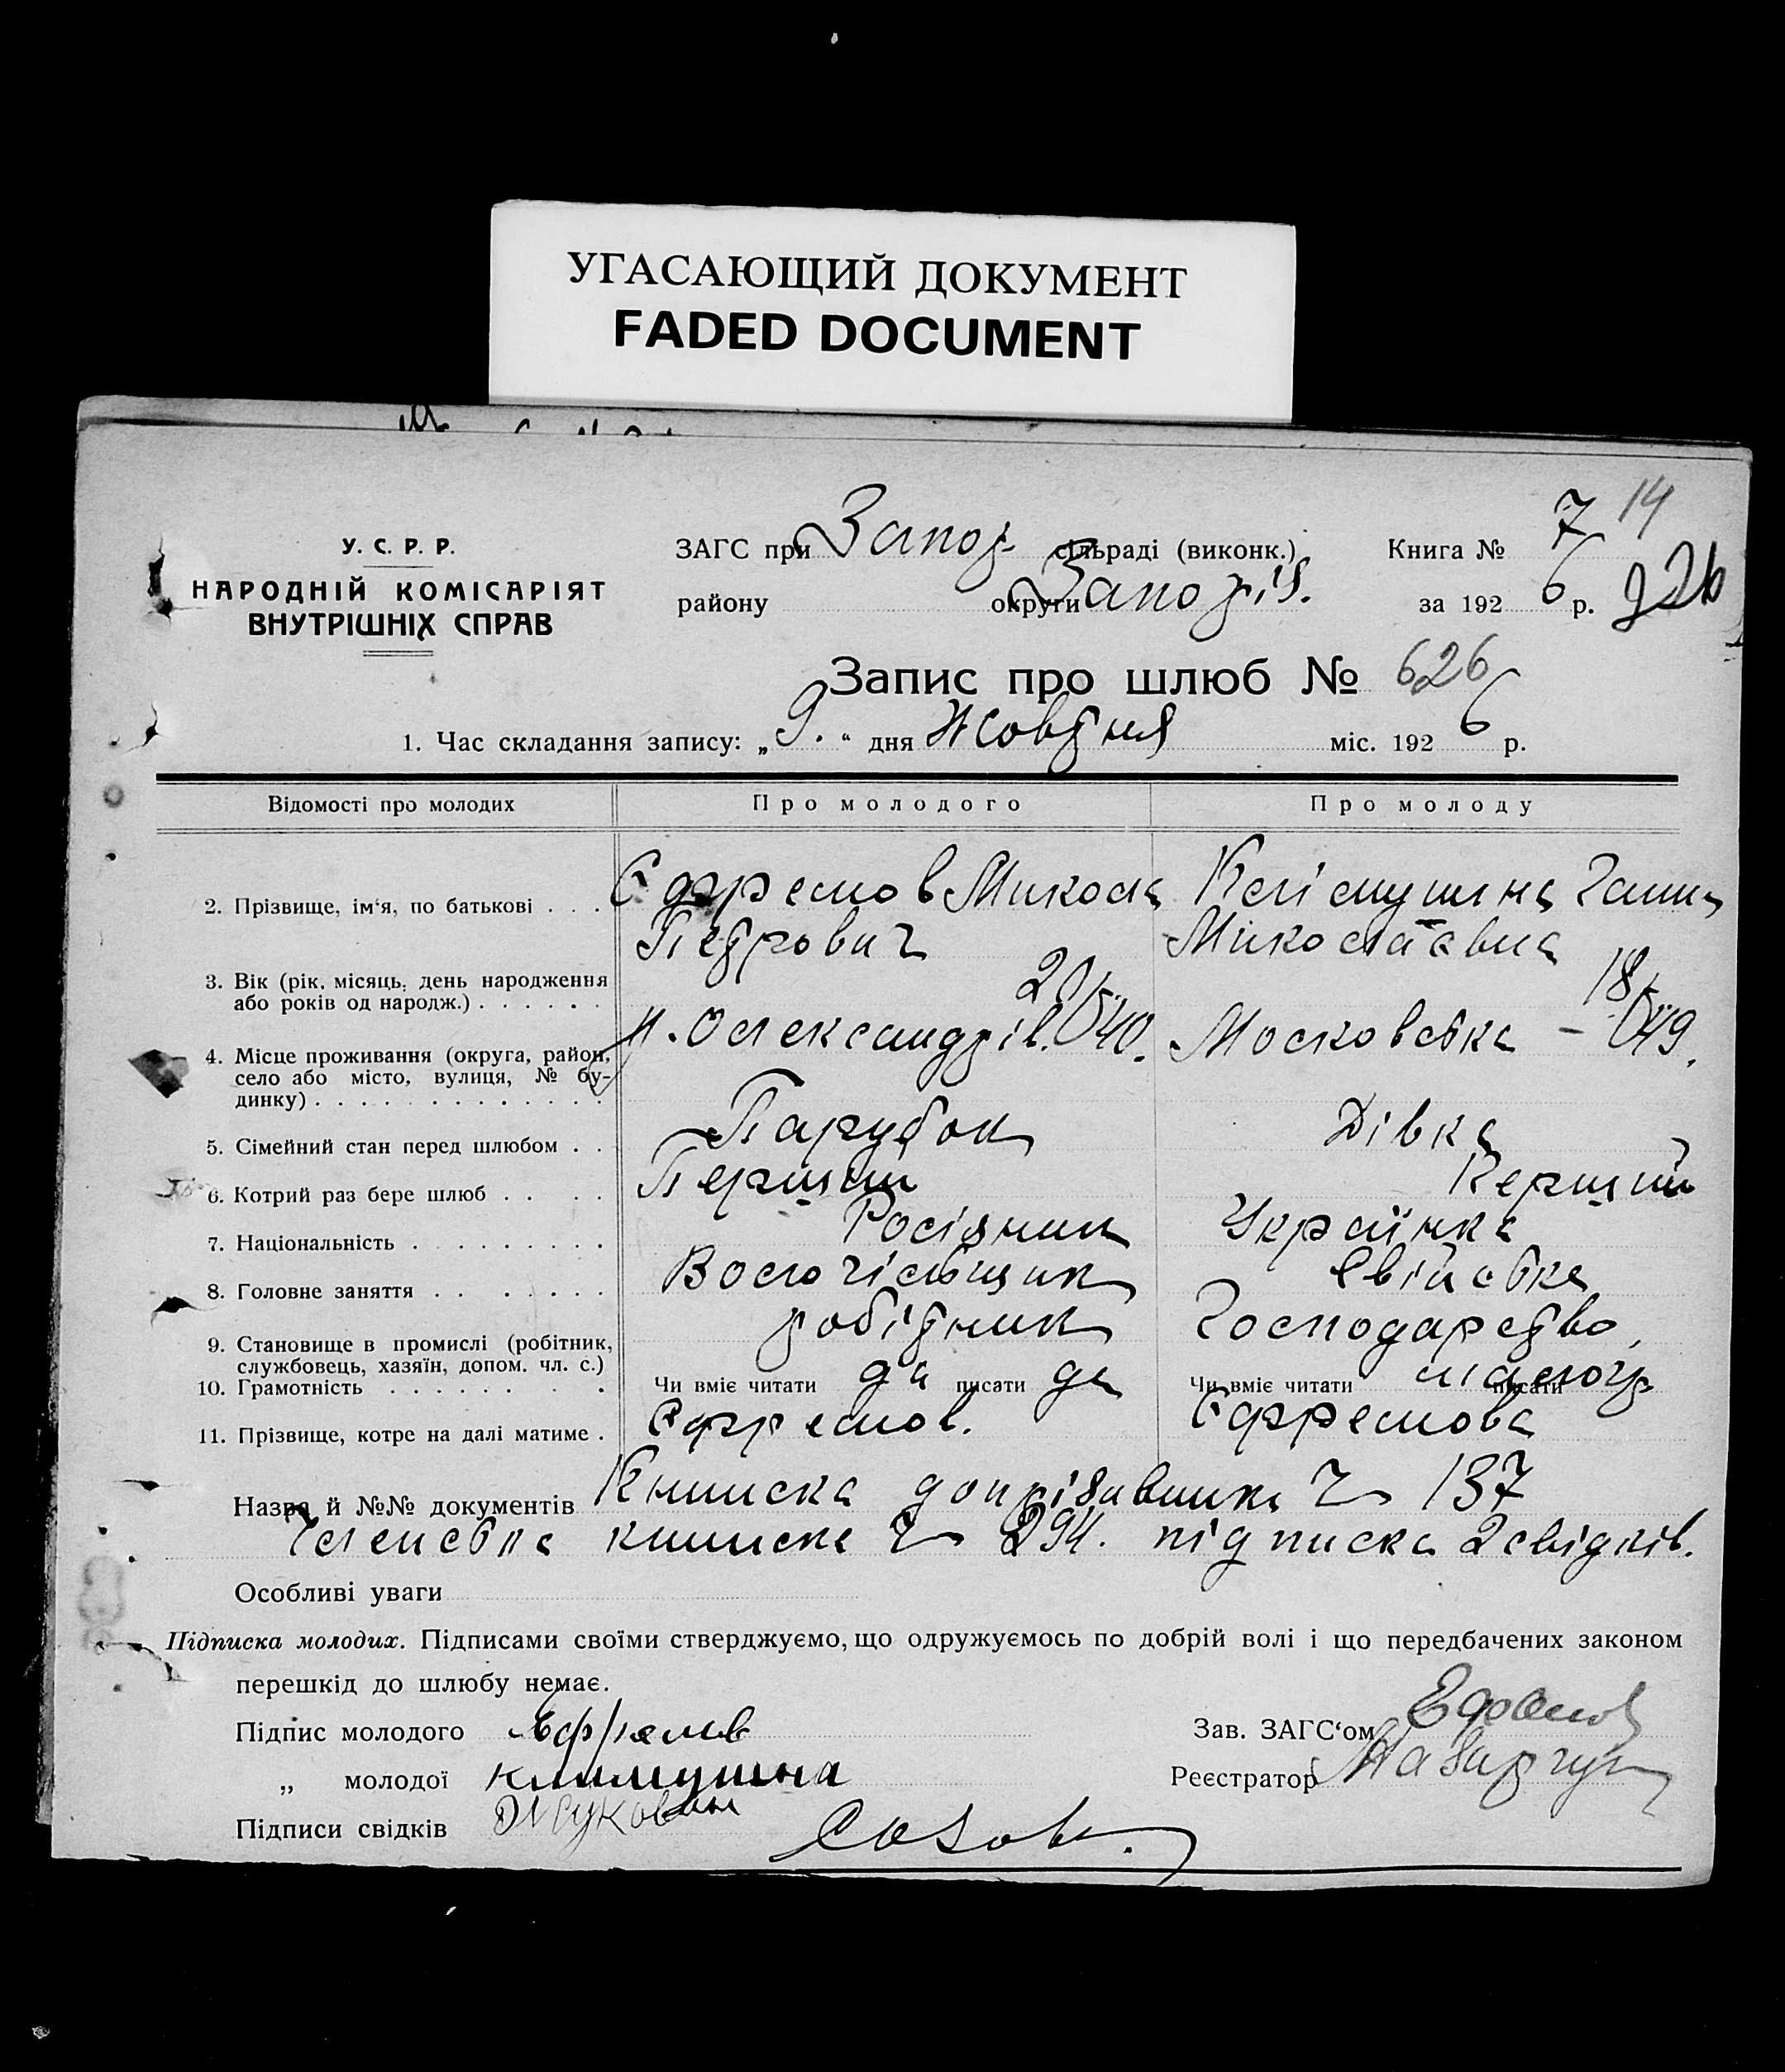 УГАСАЮЩИЙ ДОКУМЕНТ
FADED DOCUMENT
У. С. Р. Р.
НАРОДНІЙ КОМІСАРІЯТ
ВНУТРІШНІХ СПРАВ
ЗАГС при Запор. сільраді (виконк.)
району округи Запоріз.
Книга № 7 14
за 192 6 р.
Запис про шлюб № 626
1. Час складання запису: „ 9. “ дня Жовтня міс. 192 6 р.
Відомості про молодих Про молодого Про молоду
2. Прізвище, ім'я, по батькові . . . Єфремов Микола Петрович Клімушина Ганна Миколаєвна
3. Вік (рік, місяць, день народження
або років од народж.) . . . . . . 20 18
4. Місце проживання (округа, район,
село або місто, вулиця, № бу-
динку) . . . . . . . . . . . . . Олександрів. 40. Московська – 49.
5. Сімейний стан перед шлюбом . . Парубок Дівка
6. Котрий раз бере шлюб . . . . Перший Перший
7. Національність . . . . . . . . . Росіянин Українка
8. Головне заняття . . . . . . . . Свійське
9. Становище в промислі (робітник,
службовець, хазяїн, допом. чл. с.) робітник Господарство
10. Грамотність . . . . . . . . Чи вміє читати да писати да Чи вміє читати писати
11. Прізвище, котре на далі матиме . Єфремов. Єфремова
Назва й №№ документів Книжка допризивника Ч 137
Членська книжка Ч 294. підписка 2 свідків.
Особливі уваги
Підписка молодих. Підписами своїми стверджуємо, що одружуємось по добрій волі і що передбачених законом
перешкід до шлюбу немає.
Підпис молодого Ефремов Зав. ЗАГС'ом
„ молодої Климушина Реєстратор
Підписи свідків